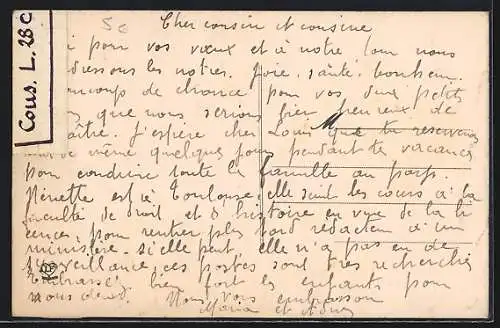 Cous. L. 28 C
Cher cousin et cousine
pour vos vœux et à notre tour nous
dressons les notres. Joie, santé, bonheur
coup de chance pour vos deux petits
que nous serions bien heureux de
aître. J'espère cher Louis que tu reserveras
de même quelques jours pendant tes vacances
pour conduire toute la famille au pays.
Ninette est à Toulouse, elle suit les cours à la
faculté de droit et d'histoire en vue de la li
cence, pour rentrer plus tard redacteur à un
ministère. si elle peut, elle n'a pas eu de
surveillance, ces postes sont très recherchés
Embrassez bien fort les enfants pour
nous deux. Nous vous embrassons
Maria et